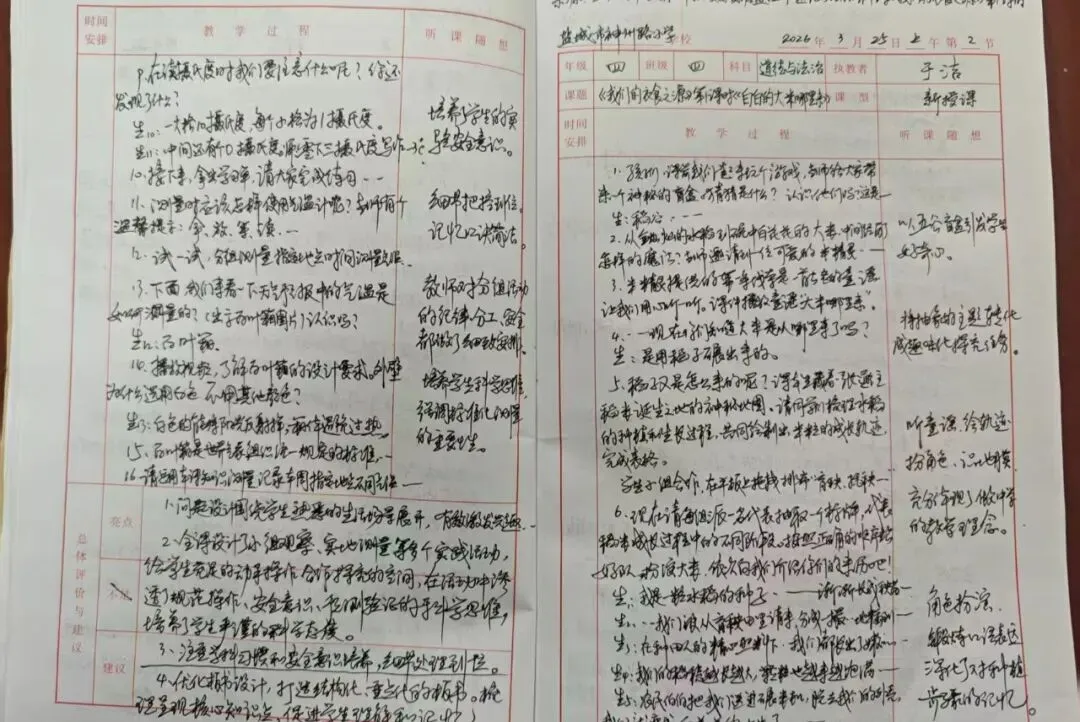 时间安排 教学过程 听课随想
9.在读摄氏度时我们要注意什么呢？你还
发现了什么？
生10：一大格10摄氏度，每个小格为1摄氏度。
生11：中间还有0摄氏度，零下三摄氏度写作-3℃
10.接下来，拿出学习单，请大家完成练习…
11.测量时应该怎样使用气温计呢？老师有个
温馨提示：拿、放、等、读…
12.试一试，分组测量指定地点时间
13.下面我们来看一下天气预报中的气温是
如何测量的？（出示百叶箱图片）认识吗？
生12：百叶箱
14.播放视频，了解百叶箱的设计要求。外壁
为什么选用白色，不用其他颜色？
生13：白色的能将阳光反射掉，
15.百叶箱是世界气象组织统一规定的标准…
16.请运用本课知识测量记录车周指定地点不同
培养了学生的实
验安全意识。
细节把控到位。
记忆口诀简洁。
教师对分组活动
的纪律、分工、安全
都做了细致安排。
培养学生科学思维，
强调标准化测量
的重要性。
总体评价与建议
亮点
不足
建议
1.问题设计围绕学生熟悉的生活场景展开，有效激发兴趣…
2.全课设计了小组观察、实地测量等多个实践活动，
给学生充足的动手操作、合作探究的空间，在活动中渗
透了规范操作、安全意识、
培养了学生严谨的科学态度。
3.注重学习习惯和安全意识培养，细节处理到位。
4.优化板书设计，打造结构化、重点化的板书。梳
理呈现核心知识点，促进学生理解和记忆。
盐城市神州路小学校 2026年3月25日上午第2节
年级 四 班级 四 科目 道德与法治 执教者 于洁
课题 《我们的衣食之源》第一课时《白白的大米哪里来》 课型 新授课
时间安排 教学过程 听课随想
1.孩子们，课前我们首先来玩个游戏，老师给大家带
来一个神秘的盲盒，猜猜是什么？认识他们吗？这是…
生：稻谷…
2.从金灿灿的水稻到碗中白花花的大米，中间经历了
怎样的魔法？老师邀请到一位可爱的米精灵…
3.米精灵提供的第一条线索是一首古老的童谣
让我们用心听一听。课件播放童谣“大米哪里来”
4.…现在你们知道大米是从哪里来了吗？
生：是用稻子碾出来的。
5.稻子又是怎么来的呢？课件出示：一张通往
稻米诞生之地的神秘地图。请同学们梳理水稻
的种植和生长过程，共同绘制出米粒的成长轨迹，
完成表格。
学生小组合作，在平板上拖拽排序：育秧、拔秧…
6.现在请每组派一名代表抽取一个标牌，代表
稻米成长过程中的不同阶段。按照正确的顺序站
好队，扮演大米，依次向我们介绍你们的来历吧！
生：我是一粒水稻的种子…渐渐长成秧苗
生：…我们被从育秧田里请来，分成一撮一撮插到
生：在种田人的精心照料下，我们
生4：我们的稻穗越长越大，
生5：农民伯伯把我们送进碾米机，脱去我们的外壳，
以五谷盲盒引发学生
好奇心。
将抽象的主题转化
成趣味化探究任务。
听童谣、绘轨迹、
扮角色、识地貌
充分体现了做中学
的教学理念。
角色扮演，
锻炼口语表达
深化了对种植
历程的记忆。